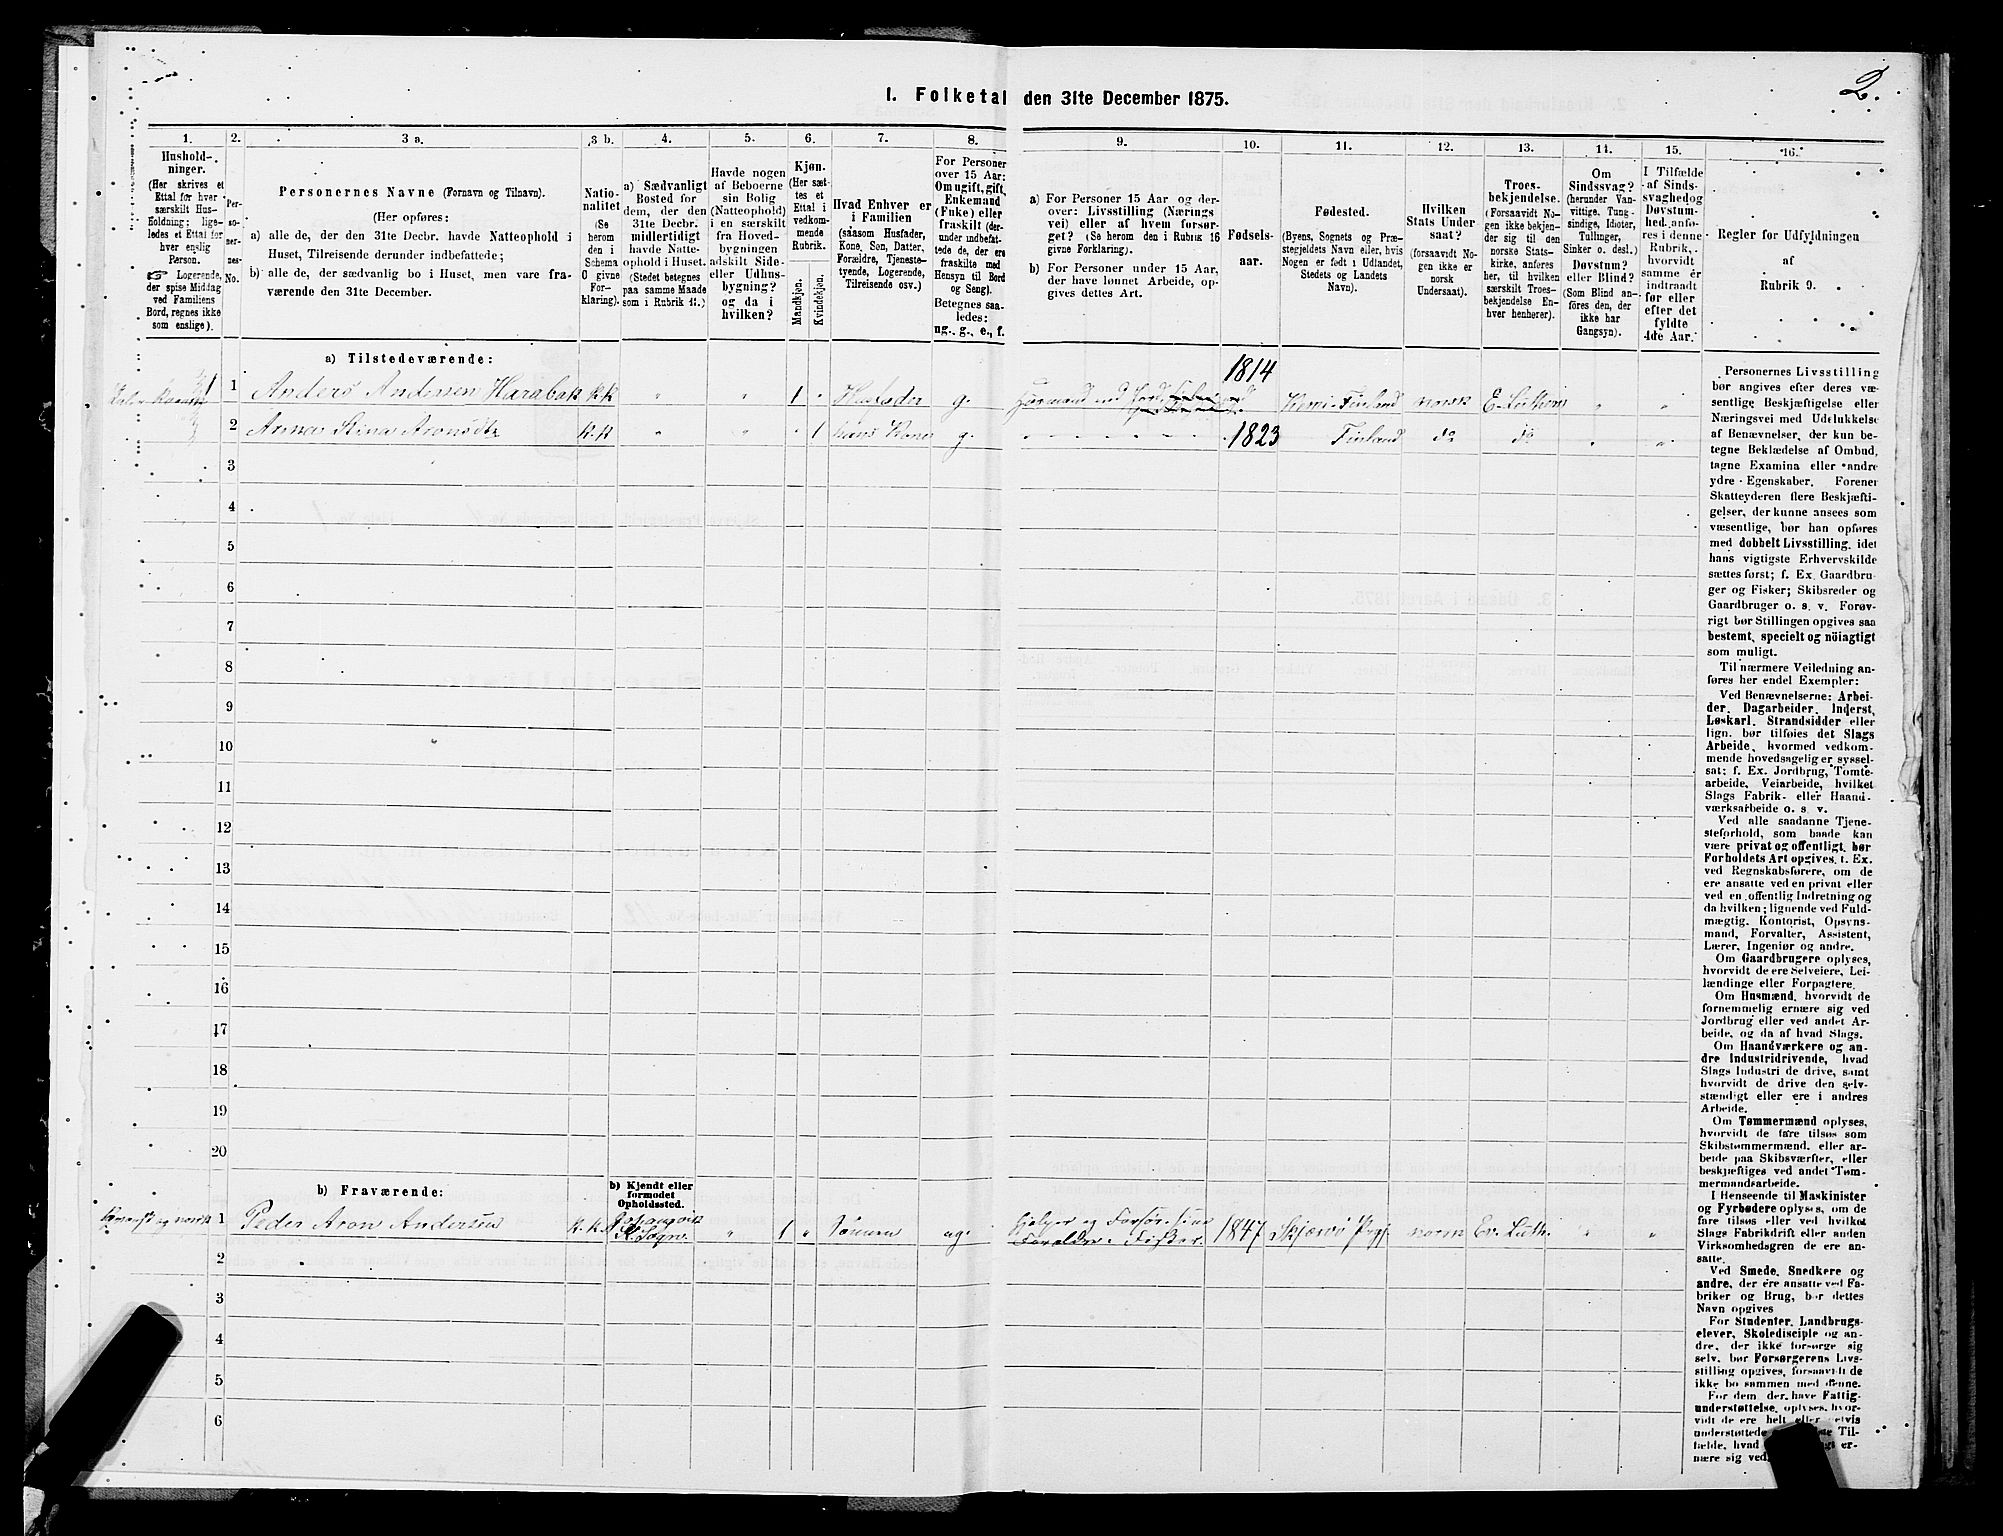 2.
I. Folketal den 31te December 1875.
1.
Hushold-
ninger.
(Her skrives et
Ettal for hver
særskilt Hus-
holdning; lige-
ledes et Ettal for
hver enslig
Person.
☞ Logerende,
der spise Middag
ved Familiens
Bord, regnes ikke
som enslige).
2.
Per-
so-
ner-
nes
No.
3 a.
Personernes Navne (Fornavn og Tilnavn).
(Her opføres:
a) alle de, der den 31te Decbr. havde Natteophold i
Huset, Tilreisende derunder indbefattede;
b) alle de, der sædvanlig bo i Huset, men vare fra-
værende den 31te December.
3 b.
Natio-
nalitet
(Se
herom
den i
Schema
O givne
For-
klaring).
4.
a) Sædvanligt
Bosted for
dem, der den
31te Decbr.
midlertidigt
havde Natte-
ophold i Huset.
(Stedet betegnes
paa samme Maade
som i Rubrik 11.)
5.
Havde nogen
af Beboerne
sin Bolig
(Natteophold)
i en særskilt
fra Hoved-
bygningen
adskilt Side-
eller Udhus-
bygning?
og da i
hvilken?
6.
Kjøn.
(Her sæt-
tes et
Ettal i
vedkom-
mende
Rubrik.
Mandkjøn.
Kvindekjøn.
7.
Hvad Enhver er
i Familien
(saasom Husfader,
Kone, Søn, Datter,
Forældre, Tjeneste-
tyende, Logerende,
Tilreisende osv.)
8.
For Personer
over 15 Aar:
Om ugift, gift,
Enkemand
(Enke) eller
fraskilt (der-
under indbefat-
tede de, der ere
fraskilte med
Hensyn til Bord
og Seng).
Betegnes saa-
ledes:
ug., g., e., f.
9.
a) For Personer 15 Aar og der-
over: Livsstilling (Nærings
vei) eller af hvem forsør-
get? (Se herom den i Rubrik 16
givne Forklaring).
b) For Personer under 15 Aar,
der have lønnet Arbeide, op-
gives dettes Art.
10.
Fødsels-
aar.
11.
Fødested.
(Byens, Sognets og Præ-
stegjeldets Navn eller, hvis
Nogen er født i Udlandet,
Stedets og Landets
Navn).
12.
Hvilken
Stats Under
saat?
(forsaavidt No-
gen ikke er
norsk
Undersaat).
13.
Troes-
bekjendelse.
(Forsaavidt No-
gen ikke bekjen-
der sig til den
norske Stats-
kirke, anføres
her, til hvilken
særskilt Troes-
bekjendelse En-
hver henhører).
14.
Om
Sindssvag?
(herunder Van-
vittige, Tung-
sindige, Idioter,
Tullinger,
Sinker o. desl.)
Døvstum?
eller Blind?
(Som Blind an-
føres den, der
ikke har
Gangsyn).
15.
I Tilfælde
af Sinds-
svaghed og
Døvstum-
hed, anfø-
res i denne
Rubrik,
hvorvidt
samme er
indtraadt
før eller
efter det
fyldte
4de Aar.
16.
Regler for Udfyldningen
af
Rubrik 9.
a) Tilstedeværende:
1 1 Anders Andersen Harabak K.K " " 1 " Husfader g. 1814 Kemi-Finland norsk E. Luthers " "
2 Anna Stina Aronsdtr K.K " " " 1 hans Kone g. 1823 Finland do do " "
3
4
5
6
7
8
9
10
11
12
13
14
15
16
17
18
19
20
b) Fraværende:
b) Kjendt eller
formodet
Opholdssted.
Kvænsk og norsk 1 Peder Aron Andersen K.K. " 1 " Sønnen ug. Hjelper og Forsør. sine
Forældre: Fisker. 1847 Skjærvø Prgj. norsk Ev. Luth. " "
2
3
4
5
6
Personernes Livsstilling
bør angives efter deres væ-
sentlige Beskjæftigelse eller
Næringsvei med Udelukkelse
af Benævnelser, der kun be-
tegne Beklædelse af Ombud,
tagne Examina eller andre
ydre Egenskaber. Forener
Skatteyderen flere Beskjæfti-
gelser, der kunne ansees som
væsentlige, bør han opføres
med dobbelt Livsstilling, idet
hans vigtigste Erhvervskilde
sættes først; f. Ex. Gaardbru-
ger og Fisker; Skibsreder og
Gaardbruger o. s. v. Forøv-
rigt bør Stillingen opgives saa
bestemt, specielt og nöiagtigt
som muligt.
Til nærmere Veiledning an-
føres her endel Exempler:
Ved Benævnelserne: Arbei-
der, Dagarbeider, Inderst,
Løskarl, Strandsidder eller
lign. bør tilføies det Slags
Arbeide, hvormed vedkom-
mende hovedsagelig er syssel-
sat; f. Ex. Jordbrug, Tomte-
arbeide, Veiarbeide, hvilket
Slags Fabrik- eller Haand-
værksarbeide o. s. v.
Ved alle saadanne Tjene-
steforhold, som baade kan
være privat og offentligt, bør
Forholdets Art opgives, f. Ex.
ved Regnskabsførere, om de
ere ansatte ved en privat eller
ved en offentlig Indretning og
da hvilken; lignende ved Fuld-
mægtig, Kontorist, Opsyns-
mand, Forvalter, Assistent,
Lærer, Ingeniør og andre.
Om Gaardbrugere oplyses,
hvorvidt de ere Selveiere, Lei-
lændinge eller Forpagtere.
Om Husmænd, hvorvidt de
fornemmelig ernære sig ved
Jordbrug eller ved andet Ar-
beide, og da af hvad Slags.
Om Haandværkere og an-
dre Industridrivende, hvad
Slags Industri de drive, samt
hvorvidt de drive den selv-
stændigt eller ere i andres
Arbeide.
Om Tømmermænd oplyses,
hvorvidt de fare tilsøs som
Skibstømmermænd, eller ar-
beide paa Skibsværfter, eller
beskjæftiges ved andet Tøm-
mermandsarbeide.
I Henseende til Maskinister
og Fyrbødere oplyses, om de
fare tilsøs eller ved hvilket
Slags Fabrikdrift eller anden
Virksomhedsgren de ere an-
satte.
Ved Smede, Snedkere og
andre, der ere ansatte ved Fa-
briker og Brug, bør dettes
Navn opgives
For Studenter, Landbrugs-
elever, Skoledisciple og an-
dre, der ikke forsørge sig
selv, bør Forsørgerens Livs-
stilling opgives, forsaavidt de
ikke bo sammen med denne.
For dem, der have Fattig-
understøttelse, oplyses, hvor-
vidt de ere helt eller delvis
understøttede Til-
fælde, hvad er-
nære sig ved.